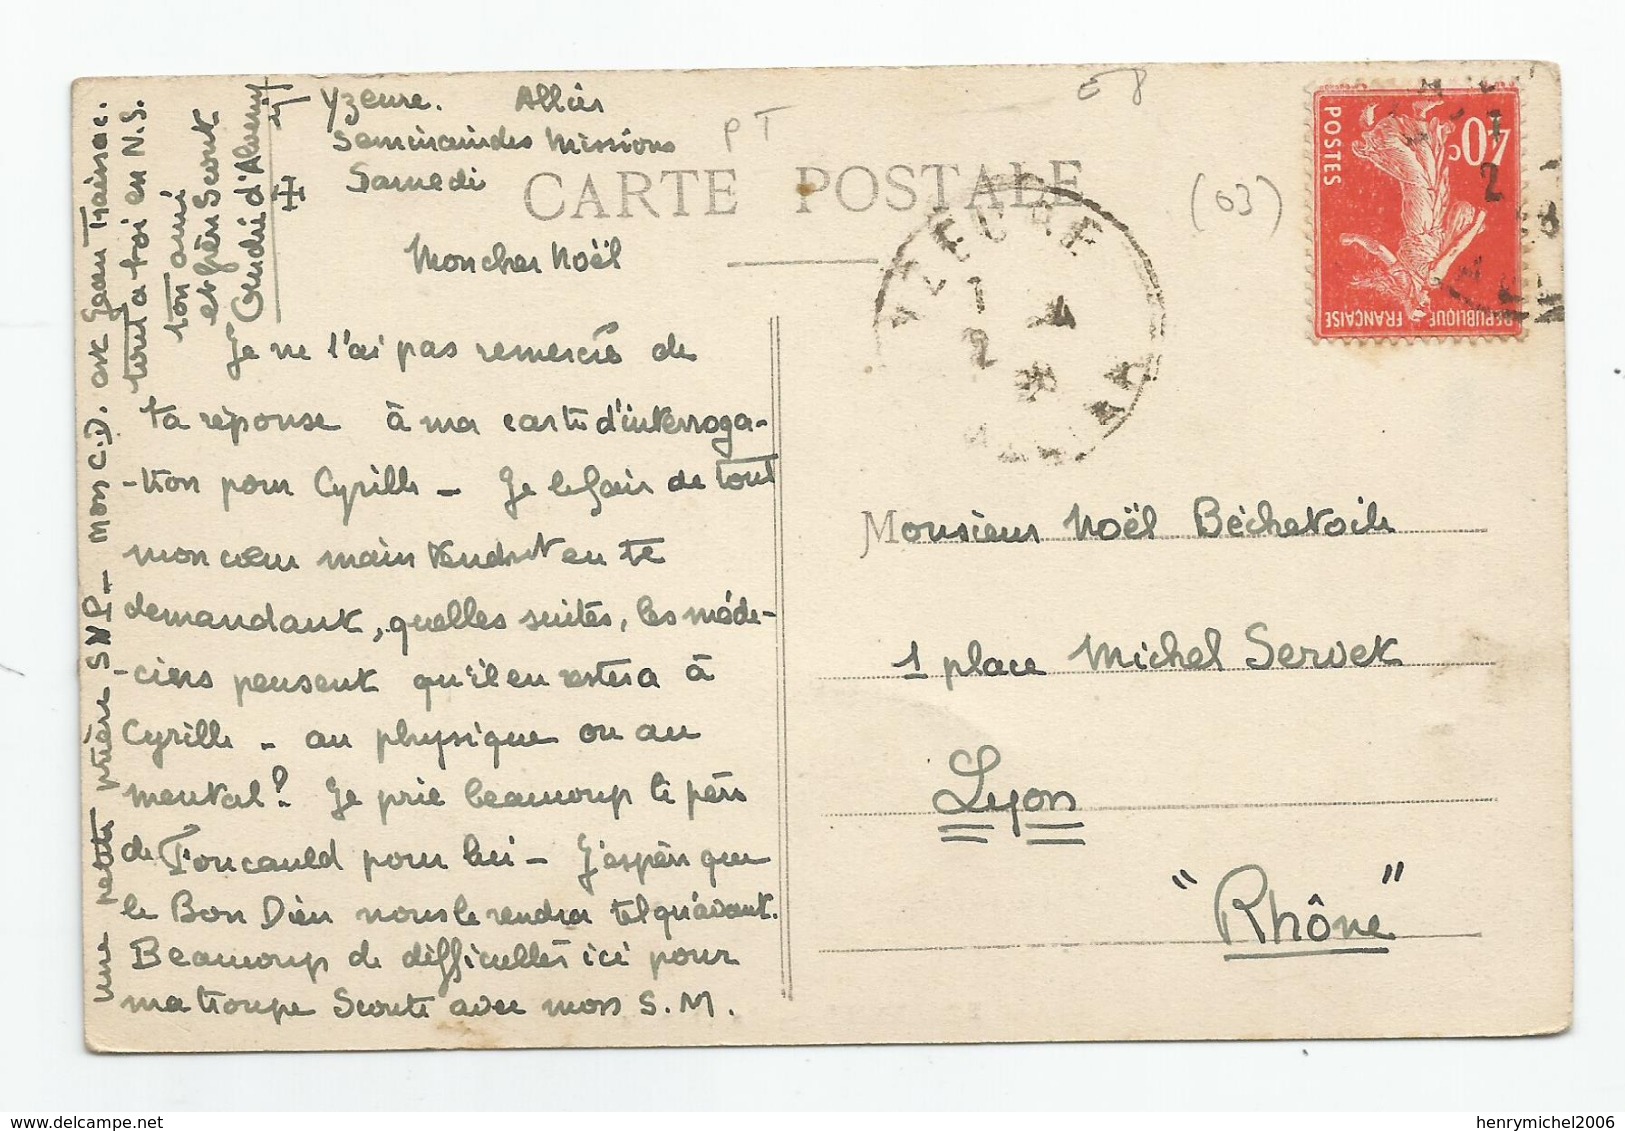 Yzeure. Allier
Seminaire des Missions
Samedi
PT
(03)
CARTE POSTALE
Mon cher Noël
Je ne t'ai pas remercié de
ta réponse à ma carte d'interroga-
-tion pour Cyrille - Je le fais de tout
mon cœur maintenant en te
demandant, quelles suites, les méde-
-cins pensent qu'il en restera à
Cyrille - au physique ou au
mental? Je prie beaucoup le père
de Foucauld pour lui - J'espère que
le Bon Dieu nous le rendra tel qu'avant.
Beaucoup de difficultés ici pour
ma troupe Scoute avec mon S.M.
une petite prière SNP - mon C.D. est Jean
tout à toi en N.S.
ton ami
et frère Scout
André
YZEURE
Monsieur Noël Béchetoile
1 place Michel Servet
Lyon
"Rhône"
POSTES
40c
REPUBLIQUE FRANÇAISE
henrymichel2006